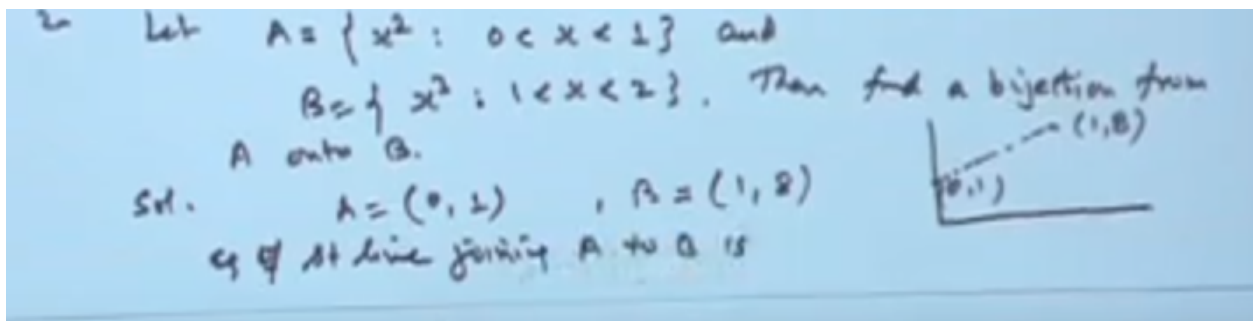 2. Let A = { x² : 0 < x < 1 } and
B = { x³ : 1 < x < 2 }. Then find a bijection from
A onto B.
(1,8)
(0,1)
Sol. A = (0, 1) , B = (1, 8)
eq of st line joining A to B is